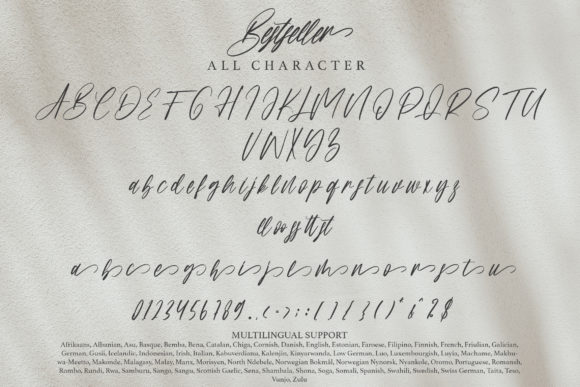 Bestseller
ALL CHARACTER
ABCDEFGHIJKLMNOPQRSTU
VWXYZ
abcdefghijklmnopqrstuvwxyz
MULTILINGUAL SUPPORT
Afrikaans, Albanian, Asu, Basque, Bemba, Bena, Catalan, Chiga, Cornish, Danish, English, Estonian, Faroese, Filipino, Finnish, French, Friulian, Galician,
German, Gusii, Icelandic, Indonesian, Irish, Italian, Kabuverdianu, Kalenjin, Kinyarwanda, Low German, Luo, Luxembourgish, Luyia, Machame, Makhu-
wa-Meetto, Makonde, Malagasy, Malay, Manx, Morisyen, North Ndebele, Norwegian Bokmål, Norwegian Nynorsk, Nyankole, Oromo, Portuguese, Romansh,
Rombo, Rundi, Rwa, Samburu, Sango, Sangu, Scottish Gaelic, Sena, Shambala, Shona, Soga, Somali, Spanish, Swahili, Swedish, Swiss German, Taita, Teso,
Vunjo, Zulu